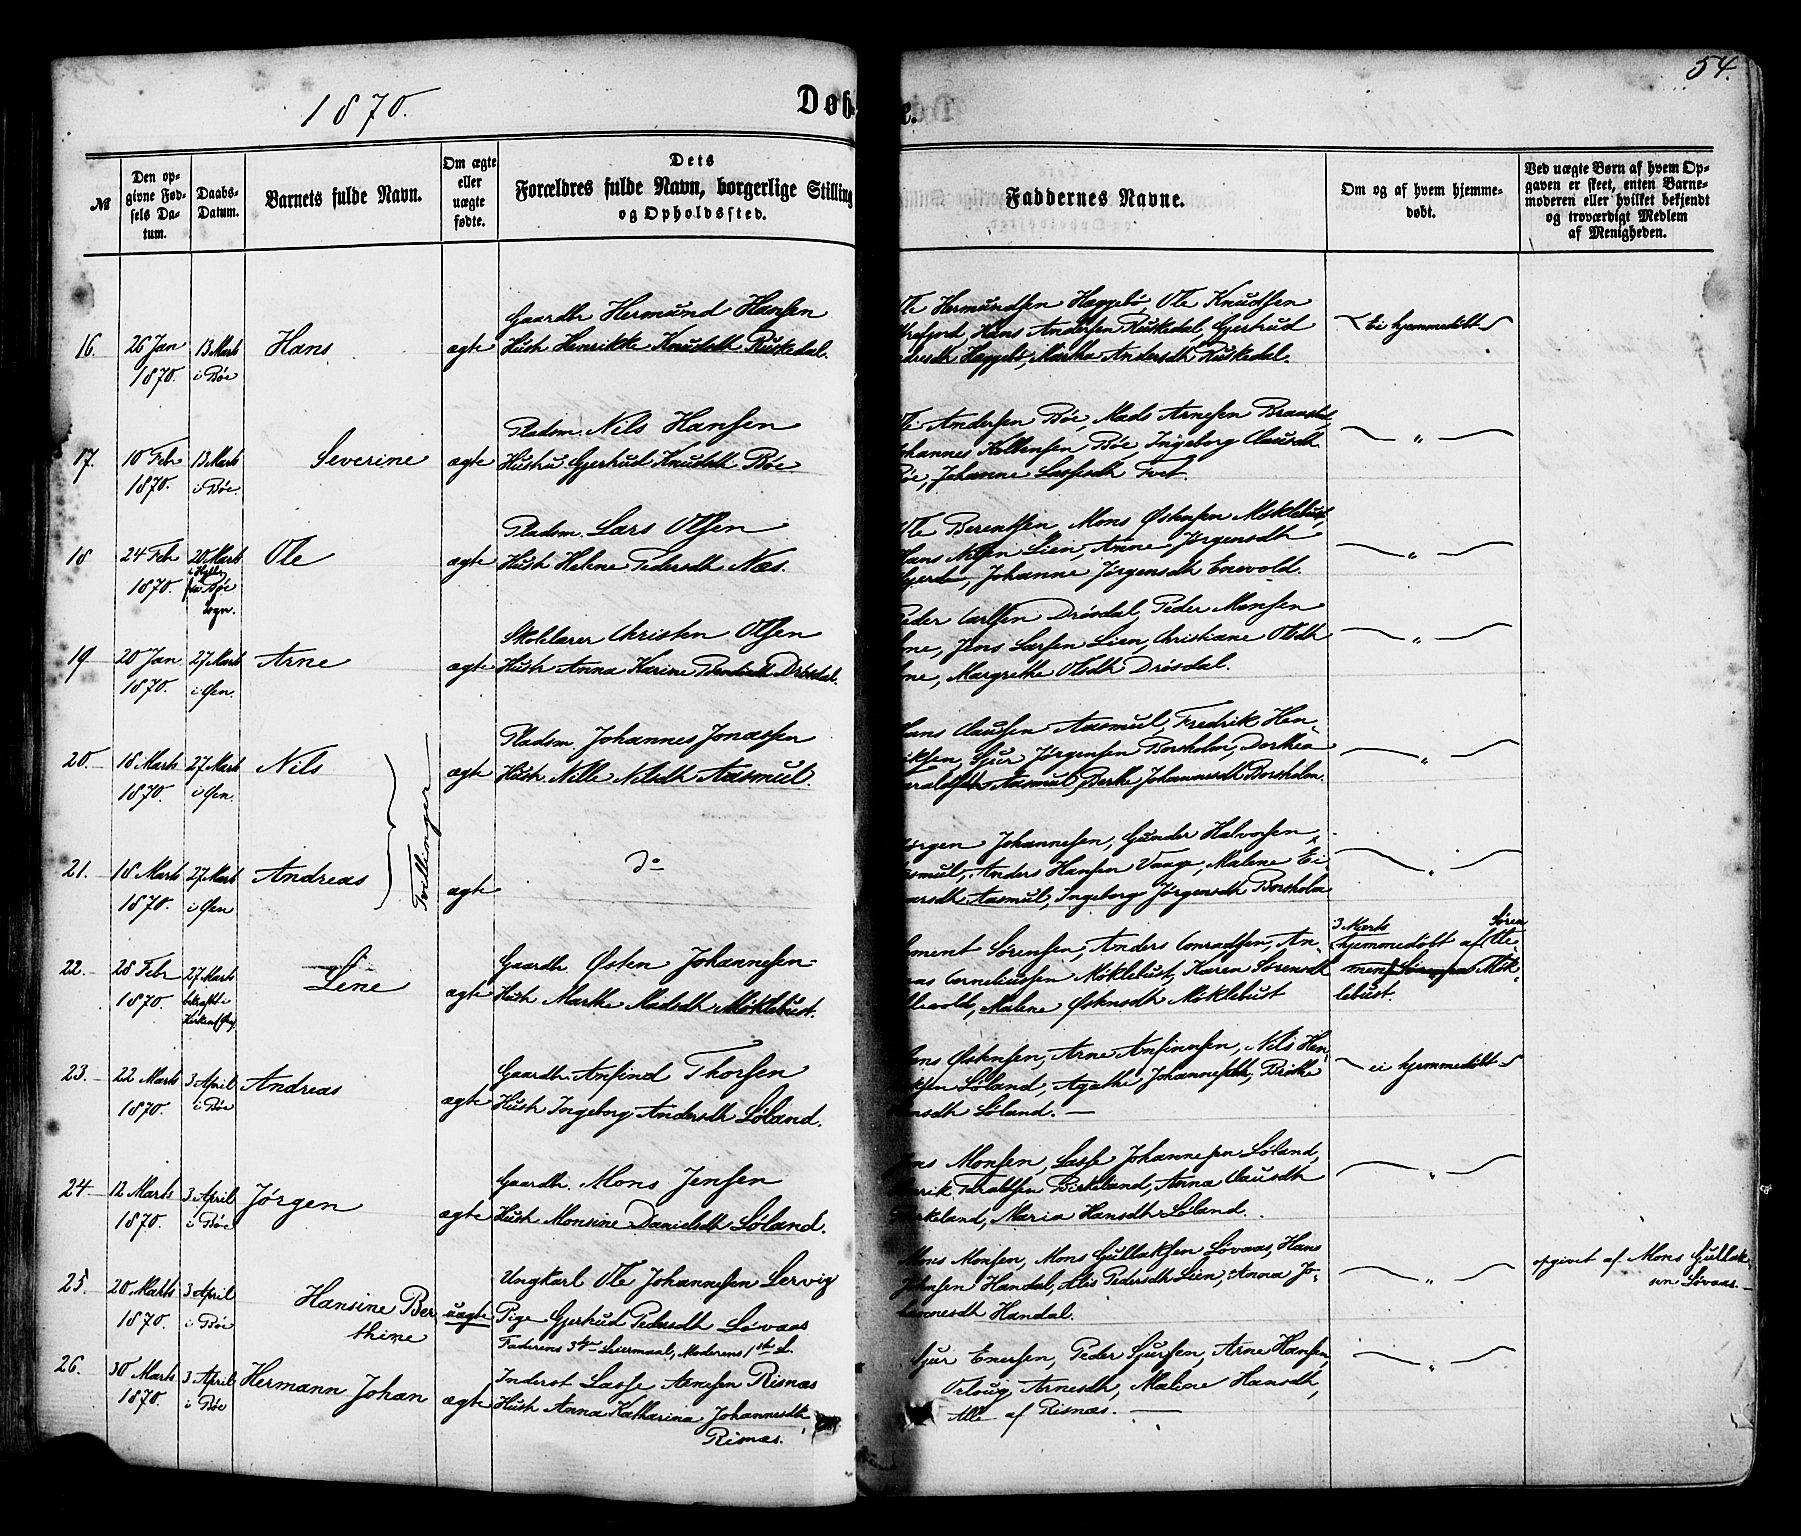 54.
1870.
Døb
e.
№
Den opgivne Fødsels Datum.
Daabs-Datum.
Barnets fulde Navn.
Om ægte eller uægte fødte.
Dets
Forældres fulde Navn, borgerlige Stilling
og Opholdssted.
Faddernes Navne.
Om og af hvem hjemmedøbt.
Ved uægte Børn af hvem Opgaven er skeet, enten Barnemoderen eller hvilket bekjendt og troværdigt Medlem af Menigheden.
16. 26 Jan 1870. 13 Marts i Bøe Hans ægte
Gaardbr Hermund Hansen
Hustr Henrikke Knudsdtr Ruskedal.
Ole Hermundsen Haggebø, Ole Knudsen
Hans Andersen Ruskedal, Gjertrud
Haggebø, Martha Andersdtr Ruskedal.
Ei hjemmedøbt
17. 10 Febr 1870. 13 Marts i Bøe. Severine ægte
Pladsm. Nils Hansen
Hustru Gjertrud Knudsdtr Bøe
Andersen Bøe, Mads Arnesen
Johannes Kolbensen Bøe, Ingeborg Clausdtr
Bøe, Johanne Lassesdtr Tvet.
"
18 24 Febr 1870. 20 Marts Bøe Sogn. Ole ægte
Pladsm. Lars Olsen
Hustr Helene Pedersdtr Næs.
Ole Berentsen, Mons Østensen Møklebust,
Hans Nilsen Lien, Anne Jørgensdtr
Gjerde, Johanne Jørgensdtr Enevold.
"
19 20 Jan 1870. 27 Marts i Øen. Arne ægte
Skolelærer Christen Olsen
Hustr Anna Karine Drøsdal.
Peder Carlsen Drøsdal, Peder Monsen
Jens Larsen Lien, Christiane Olsdtr
Margrethe Olsdtr Drøsdal.
"
20. 18 Marts 1870. 27 Marts i Øen. Nils ægte
Tvillinger
Pladsm. Johannes Jonassen
Hustr Nille Nilsdtr Aasmul.
Hans Clausen Aasmul, Fredrik Hen-
riksen, Sjur Jørgensen Borsholm, Dorthea
Aasmul, Berthe Johannesdtr Borsholm.
"
21. 18 Marts 1870. 27 Marts i Øen Andreas ægte
do
Jørgen Johannesen, Gunder Halvorsen,
Aasmul, Anders Hansen Vaage, Malene Ei-
narsdtr Aasmul, Ingeborg Jørgensdtr Borsholm
"
22. 28 Febr 1870. 27 Marts Lene ægte
Gaardbr. Østen Johannesen
Hustr Marthe Madsdtr Møklebust.
Clement Sørensen, Anders Conradsen, An-
dreas Corneliussen Møklebust, Karen Sørensdtr
Malene Østensdtr Møklebust
3 Marts
hjemmedøbt af Søren
Møk-
lebust.
23. 22 Marts 1870. 3 April i Bøe Andreas ægte
Gaardbr. Anfind Thorsen
Hustr Ingeborg Andersdtr Løland.
Mons Østensen, Arne Anfinnsen, Nils Hen-
riksen Løland, Agathe Johannesdtr, Birthe
Løland. —
ei hjemmedøbt
24 12 Marts 1870. 3 April i Bøe Jørgen ægte
Gaardbr. Mons Jensen
Hustr Monsine Danielsdtr Løland.
Jens Monsen, Lasse Johannesen Løland,
Birkeland, Anna Clausdtr
Birkeland, Maria Hansdtr Løland.
"
25. 20 Marts 1870. 3 April i Bøe Hansine Ber
thine uægte
Ungkarl Ole Johannesen Lervig
Pige Gjertrud Pedersdtr Løvaas
Faderens 3die Leiermaal, Moderens 1ste L.
Mons Monsen, Mons Gullaksen Løvaas, Hans
Johnsen Handal, Alis Pedersdtr Lien, Anna Jo-
hannesdtr Handal.
"
opgivet af Mons Gullak-
sen Løvaas.
26. 30 Marts 1870. 3 April i Bøe Hermann Johan ægte
Inderst Lasse Arnesen Risnæs
Hustr Anna Katharina Johannesdtr,
Risnæs.
Sjur Enersen, Peder Sjursen, Arne Hansen,
Orloug Arnesdtr, Malene Hansdtr,
Alle af Risnæs. —
"